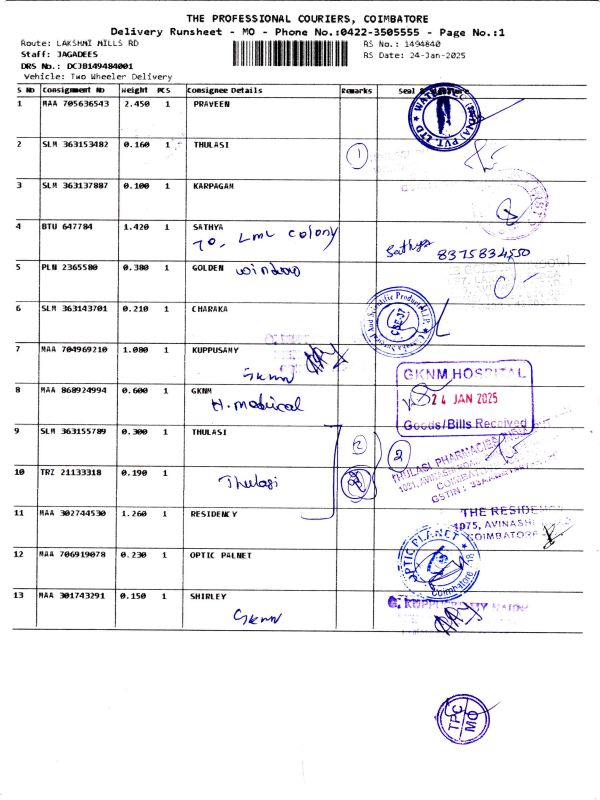 THE PROFESSIONAL COURIERS, COIMBATORE
Delivery Runsheet - MO - Phone No.:0422-3505555 - Page No.:1
Route: LAKSHMI MILLS RD
RS No.: 1494840
Staff: JAGADEES
RS Date: 24-Jan-2025
DRS No.: DCJB149484001
Vehicle: Two Wheeler Delivery
S No Consignment No Weight PCS Consignee Details Remarks Seal
1 MAA 705636543 2.450 1 PRAVEEN
PVT. LTD
2 SLM 363153482 0.160 1 THULASI 1
3 SLM 363137887 0.100 1 KARPAGAM
4 BTU 647784 1.420 1 SATHYA
70, LML colony
Sathya 8375834550
5 PLN 2365580 0.380 1 GOLDEN window
6 SLM 363143701 0.210 1 CHARAKA
Charaka Surgical And Scientific Products
CBE-37
7 MAA 704969210 1.080 1 KUPPUSAMY
Gknm
8 MAA 868924994 0.600 1 GKNM
H. medical
GKNM HOSPITAL
24 JAN 2025
Goods/Bills Received
9 SLM 363155789 0.300 1 THULASI 2 2
THULASI PHARMACIES
1081, AVINASHI
COIMBATORE
GSTIN :
10 TRZ 21133318 0.190 1
Thulasi
11 MAA 302744530 1.260 1 RESIDENCY
THE RESIDENCY
1075, AVINASHI
COIMBATORE
12 MAA 706919078 0.230 1 OPTIC PALNET
OPTIC PLANET
Coimbatore
13 MAA 301743291 0.150 1 SHIRLEY
Gknm
G. KUPPUSAMY NAIDU
TPC
MO